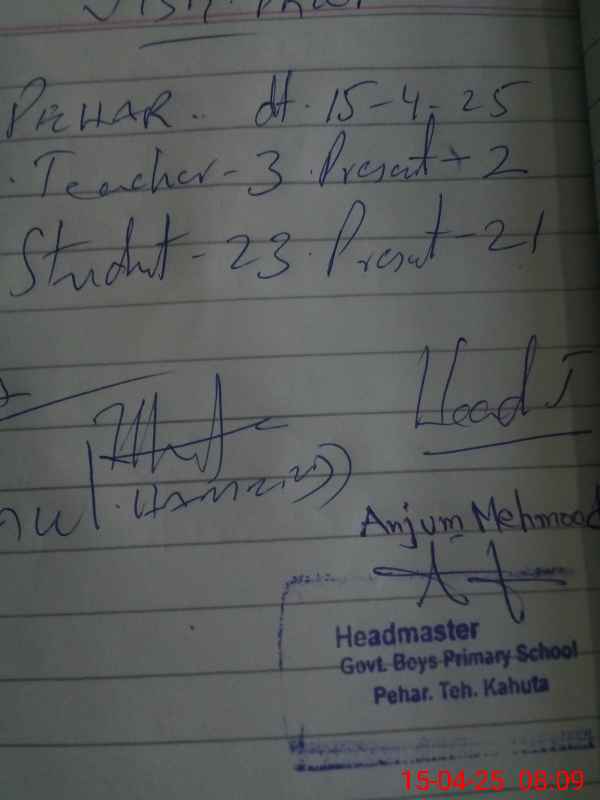 PEHAR. dt. 15-4-25
Teacher-3. Present-2
Student-23. Present-21
Head T
Anjum Mehmood
Headmaster
Govt. Boys Primary School
Pehar. Teh. Kahuta
15-04-25 08:09